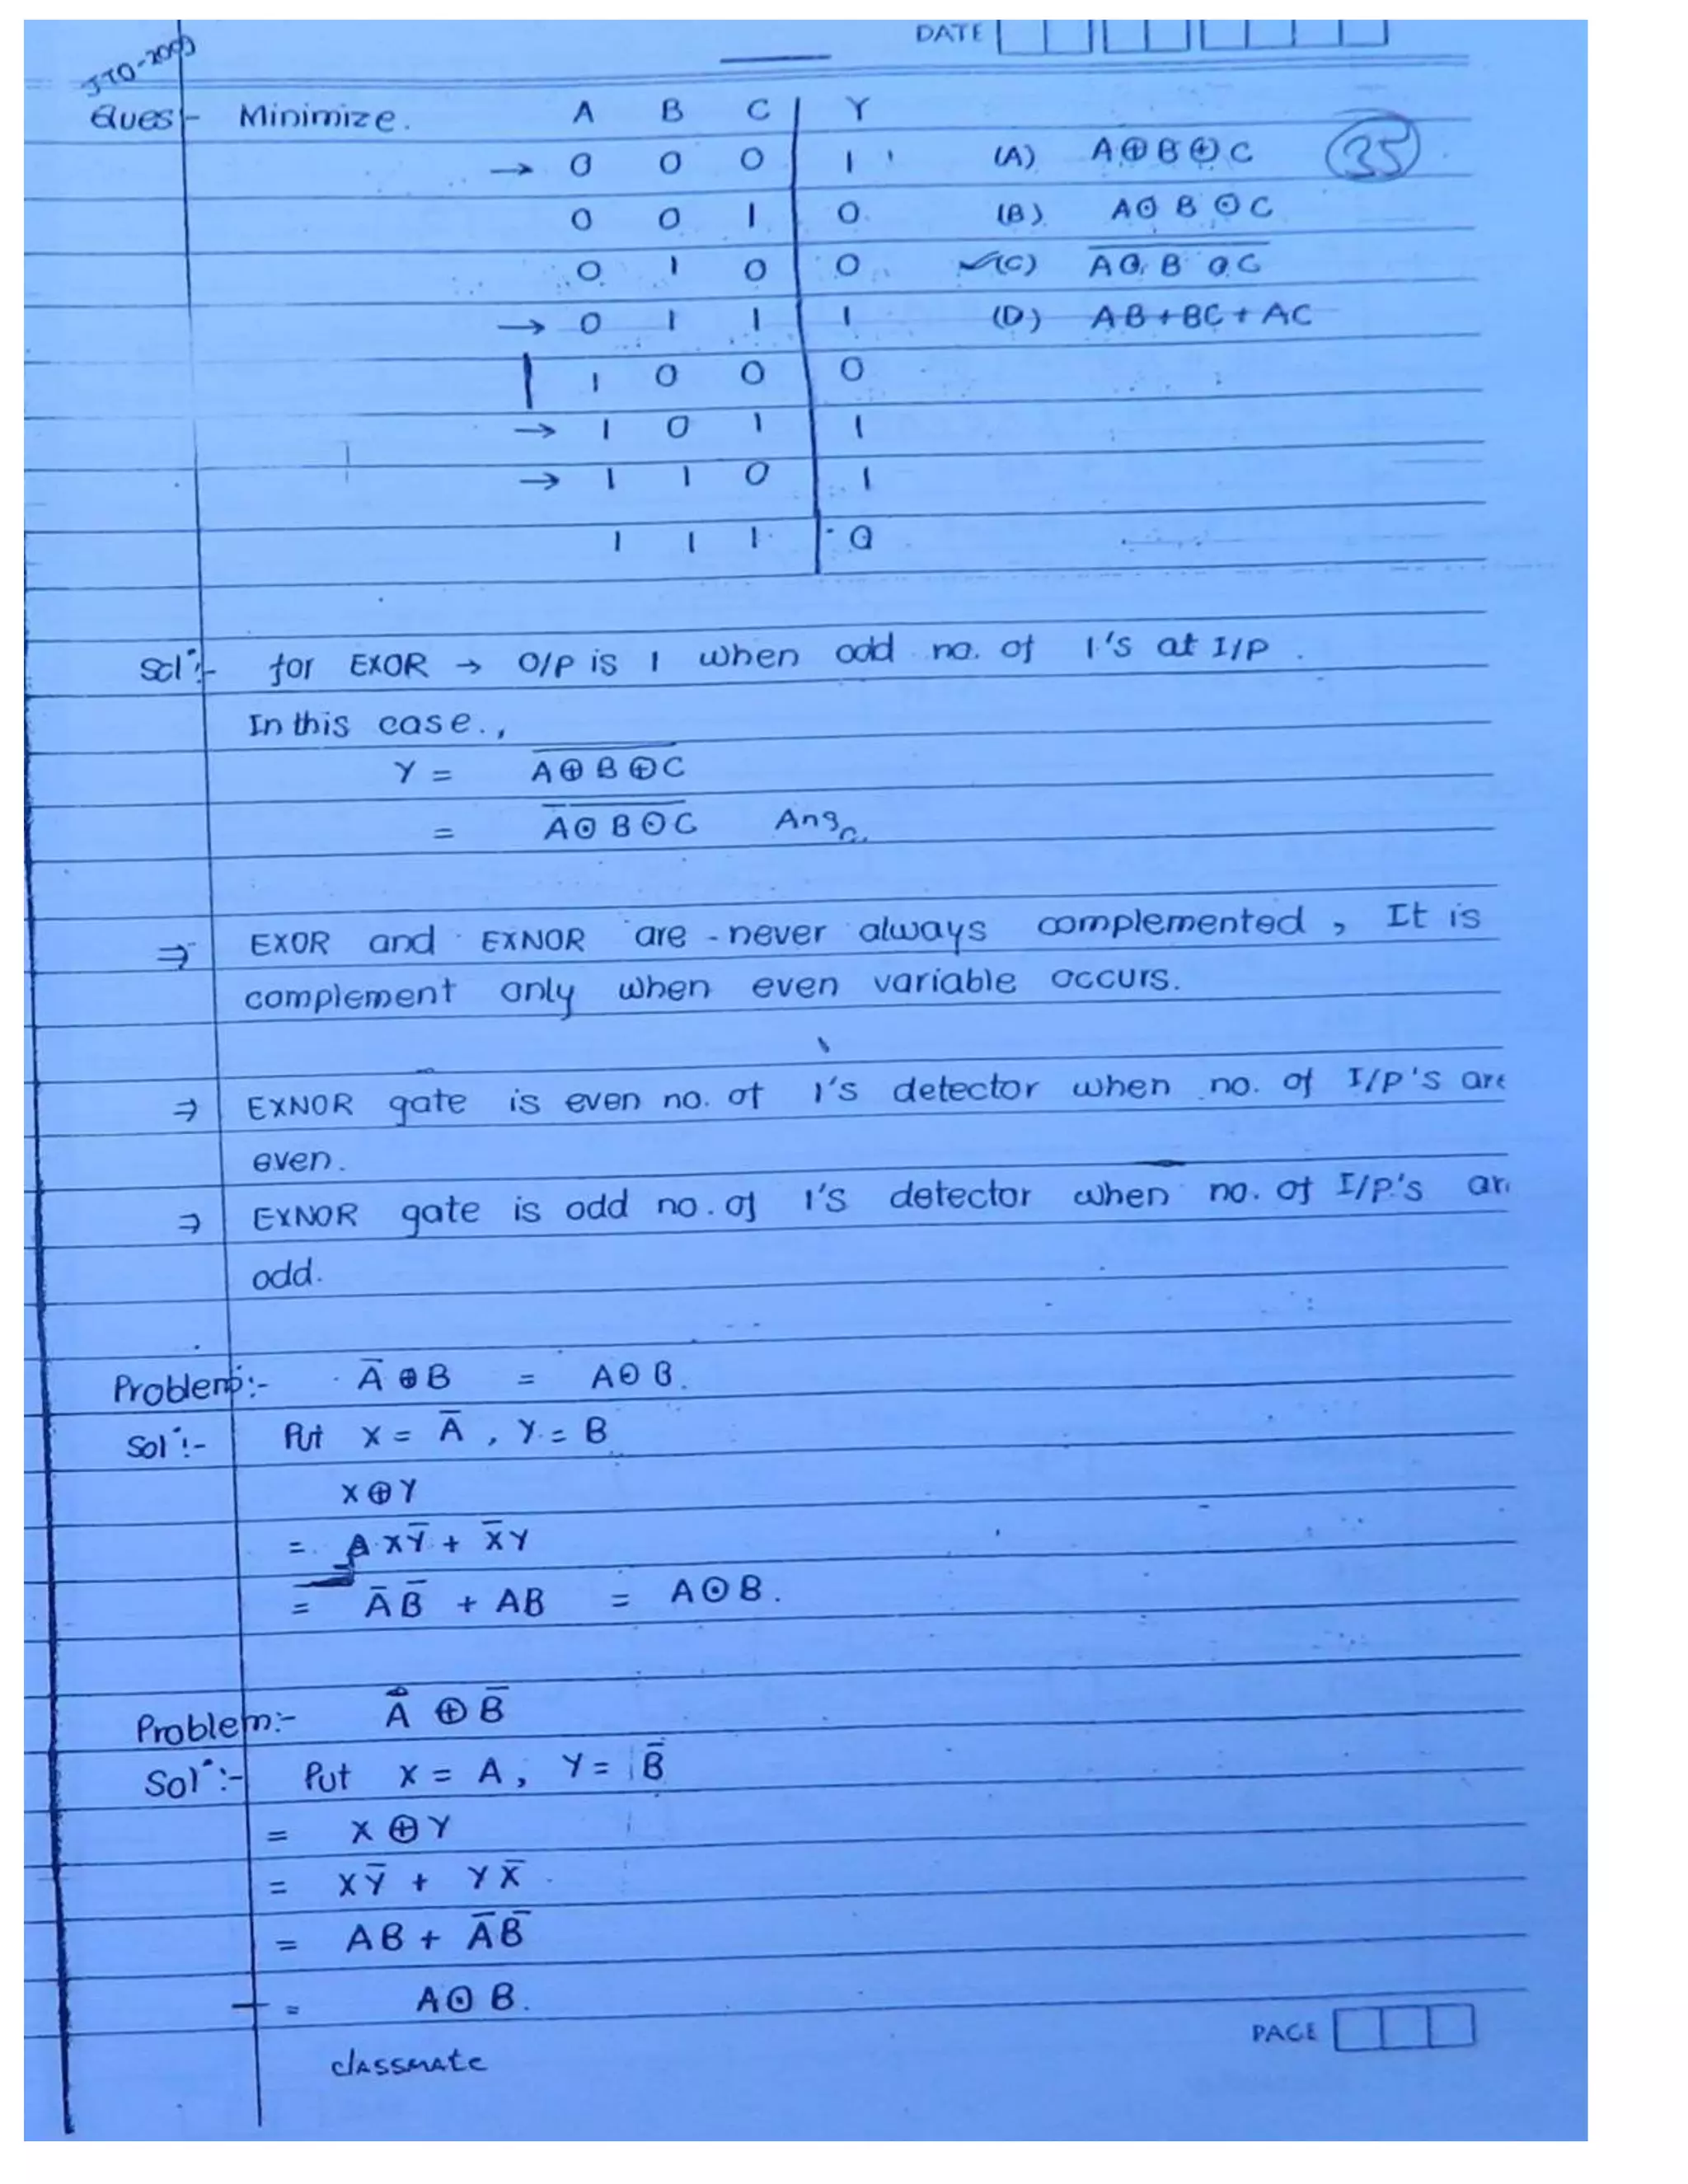 DATE
JTO-2009
Ques- Minimize. A B C Y
→ 0 0 0 1 (A) A⊕B⊕C 35
0 0 1 0 (B) A⊙B⊙C
0 1 0 0 ✓(C) \overline{A⊙B⊙C}
→ 0 1 1 1 (D) AB+BC+AC
1 0 0 0
→ 1 0 1 1
→ 1 1 0 1
1 1 1 0
Solⁿ:- for EXOR → O/P is 1 when odd no. of 1's at I/P.
In this case.,
Y = \overline{A⊕B⊕C}
= \overline{A⊙B⊙C} Ans
⇒ EXOR and EXNOR are never always complemented, It is
complement only when even variable occurs.
⇒ EXNOR gate is even no. of 1's detector when no. of I/P's are
even.
⇒ EXNOR gate is odd no. of 1's detector when no. of I/P's ar
odd.
Problem:- Ā⊕B = A⊙B.
Solⁿ:- Put X = Ā, Y = B
X⊕Y
= XȲ + X̄Y
= ĀB̄ + AB = A⊙B.
Problem:- A ⊕ B̄
Solⁿ:- Put X = A, Y = B̄
= X⊕Y
= XȲ + YX̄
= AB + ĀB̄
= A⊙B.
PAGE
classmate